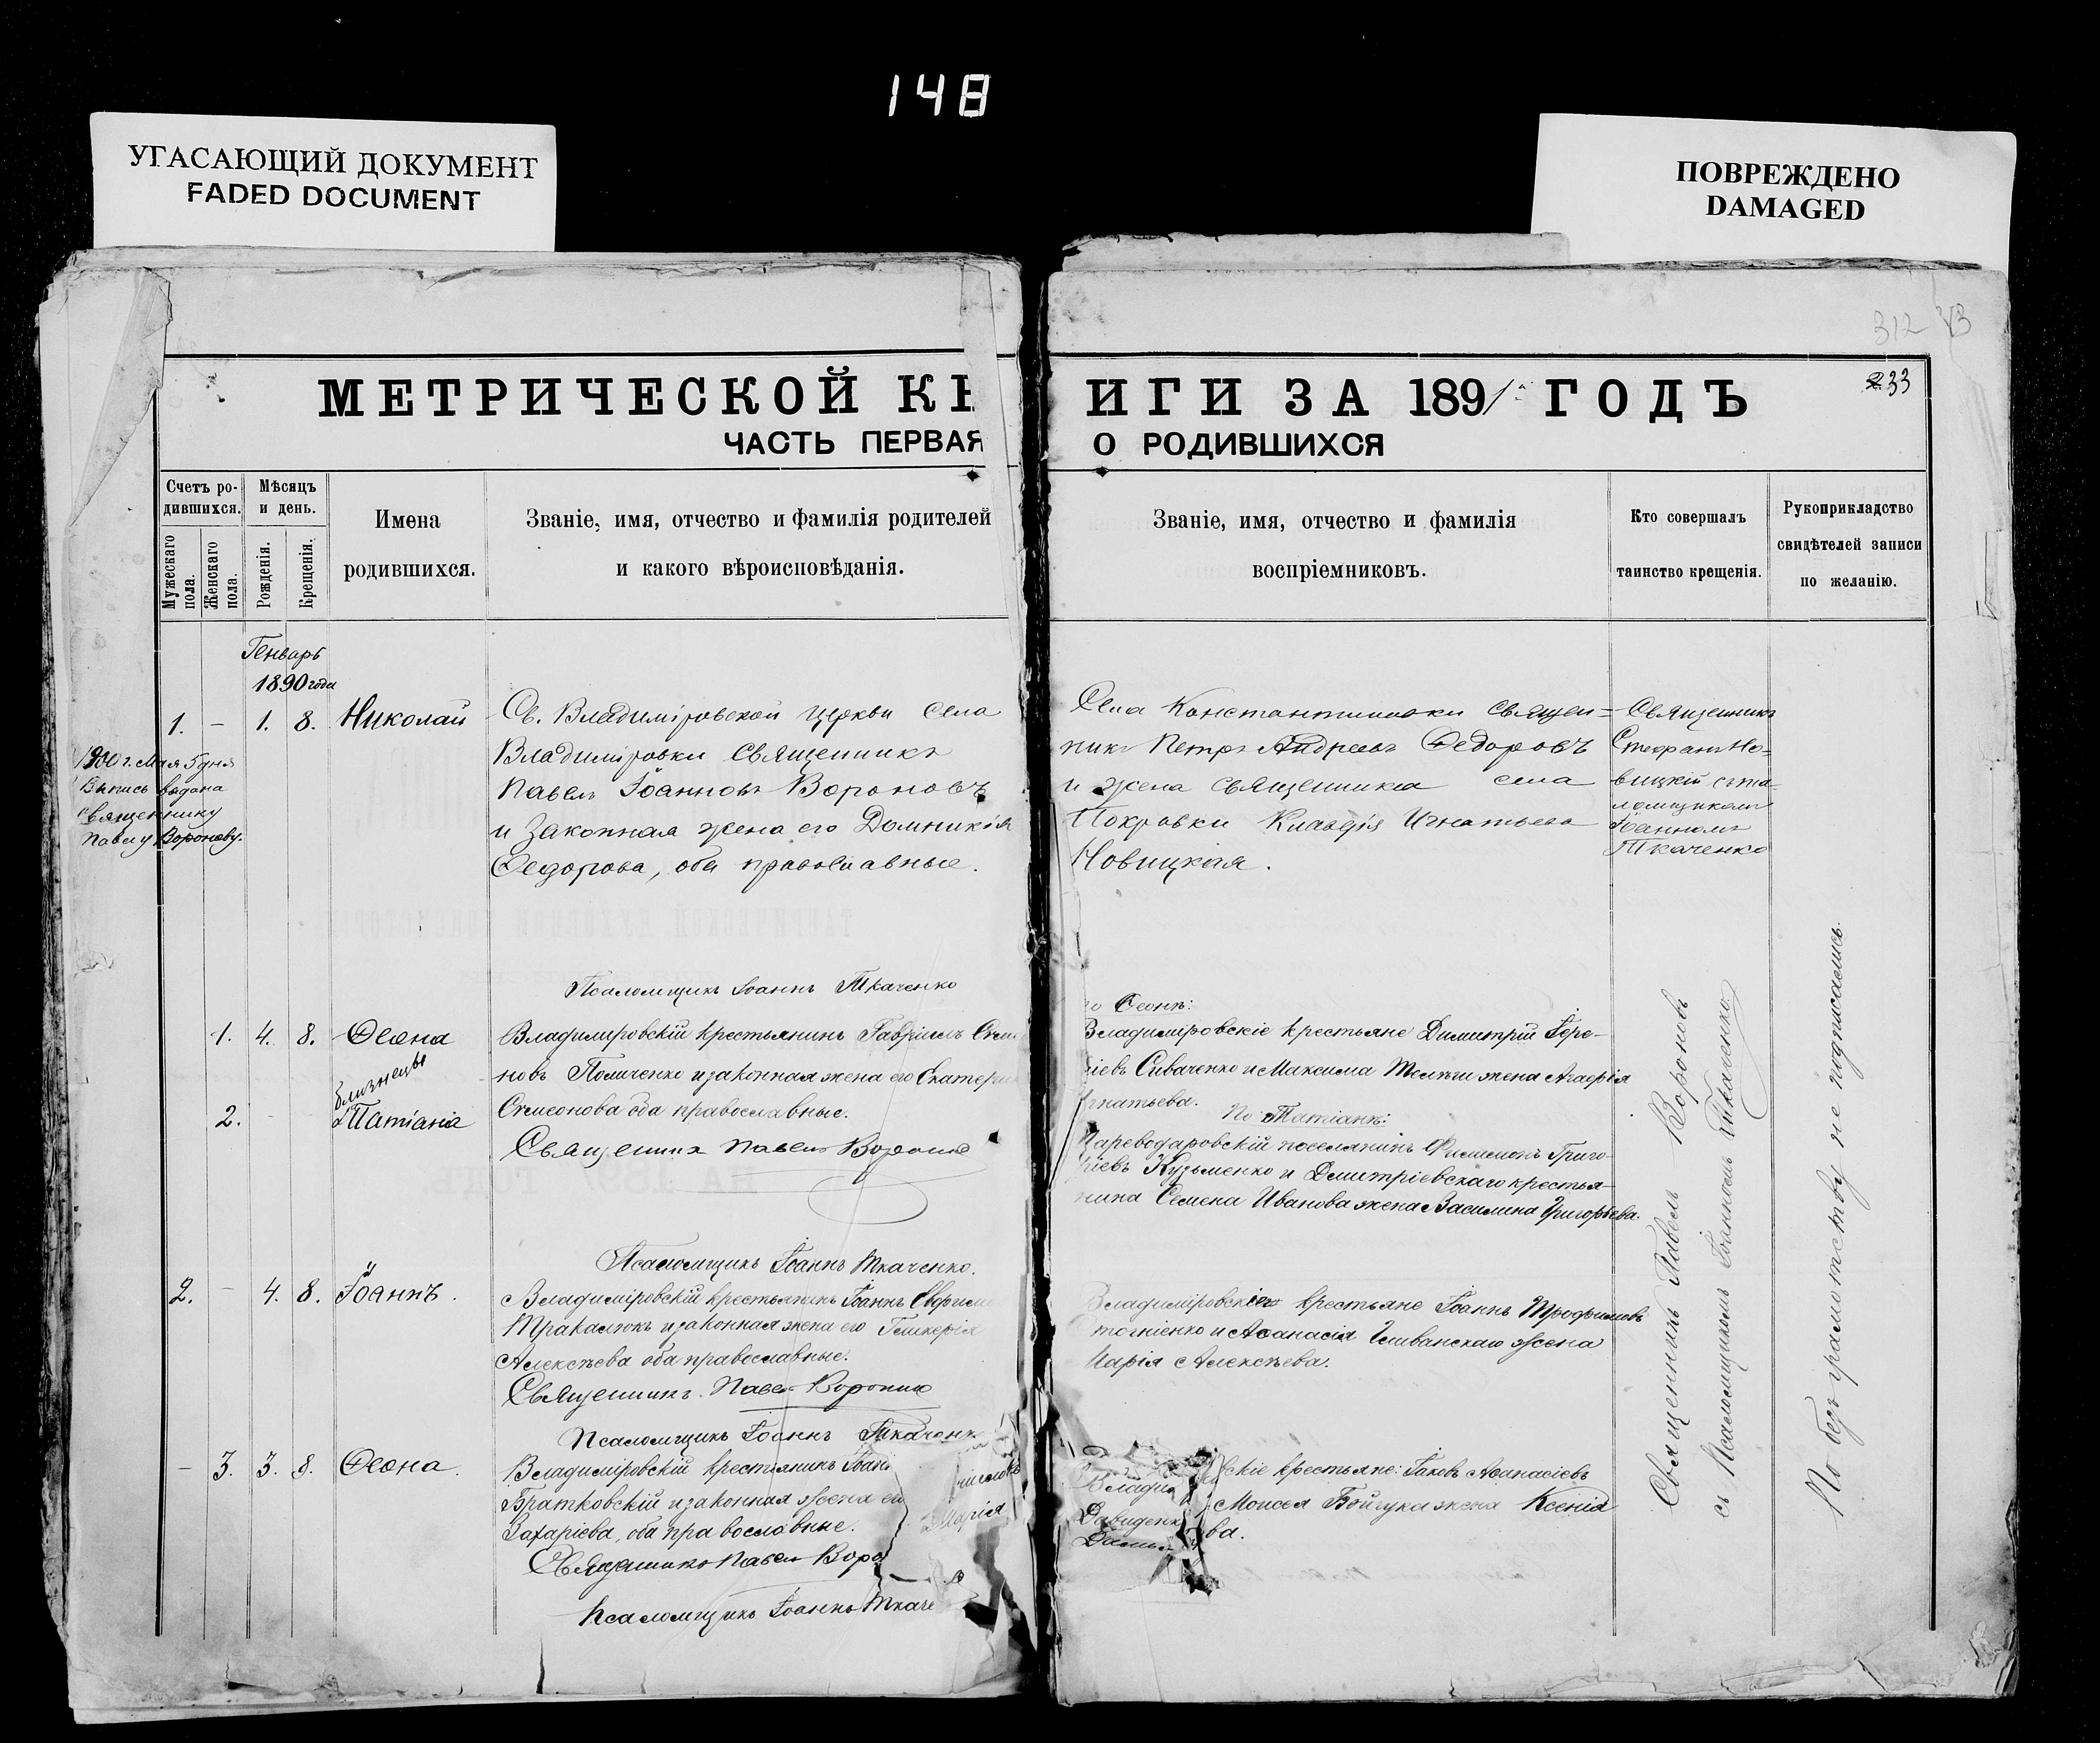 148
УГАСАЮЩИЙ ДОКУМЕНТ
FADED DOCUMENT
ПОВРЕЖДЕНО
DAMAGED
312
233
МЕТРИЧЕСКОЙ КН
ИГИ ЗА 1891 ГОДЪ
ЧАСТЬ ПЕРВАЯ
О РОДИВШИХСЯ
Счетъ ро-
дившихся.
Мужескаго пола.
Женскаго пола.
Мѣсяцъ
и день.
Рожденія.
Крещенія.
Имена
родившихся.
Званіе, имя, отчество и фамилія родителей
и какого вѣроисповѣданія.
Званіе, имя, отчество и фамилія
воспріемниковъ.
Кто совершалъ
таинство крещенія.
Рукоприкладство
свидѣтелей записи
по желанію.
Генварь
1890 года
1. – 1. 8. Николай
Св. Владиміровской церкви села
Владиміровки Священникъ
Павелъ Іоанновъ Вороновъ
и законная жена его Домникія
Федорова, оба православные.
1900 г. Мая 5 дня
Выпись выдана
священнику
Павлу Воронову.
Села Константиновки священ=
никъ Петръ Андреевъ Федоровъ
и жена священника села
Покровки Клавдія Игнатьева
Новицкая.
Священникъ
Стефанъ Но=
вицкій съ пса
ломщикомъ
Іоанномъ
Ткаченко
Псаломщикъ Іоаннъ Ткаченко
1. 4. 8. Ѳеона
близнецы
2. Татіана
Владиміровскій крестьянинъ Гавріилъ Симе
новъ Поличенко и законная жена его Екатери
Симеонова оба православные.
Священникъ Павелъ Вороновъ
по Ѳеонѣ:
Владиміровскіе крестьяне Димитрій Іеро-
ѳіевъ Сиваченко и Максима жена Агафія
Игнатьева.
По Татіанѣ:
Цареводаровскій поселянинъ Филимонъ Григо-
ріевъ Кузьменко и Дмитріевскаго крестья-
нина Семена Иванова жена Василина Григорьева.
Псаломщикъ Іоаннъ Ткаченко.
2. – 4. 8. Іоаннъ.
Владиміровскій крестьянинъ Іоаннъ Евфиме
Тракалюкъ и законная жена его Гликерія
Алексѣева оба православные.
Священникъ Павелъ Вороновъ
Владиміровскіе крестьяне Іоаннъ Трофимовъ
и Аѳанасія жена
Марія Алексѣева.
Псаломщикъ Іоаннъ Ткаченк
– 3. 3. 8. Ѳеона.
Владиміровскій крестьянинъ Іоан
Братковскій и законная жена ег Марія
Захаріева, оба православные.
Священникъ Павелъ Воро
Псаломщикъ Іоаннъ Ткаче
Владим скіе крестьяне: Іаковъ Аѳанасіевъ
Давиденк Моисея Бойчука жена Ксенія
Дамья ва.
Священникъ Павелъ Вороновъ
съ Псаломщикомъ Іоанномъ Ткаченко.
По безграмотству не подписались.